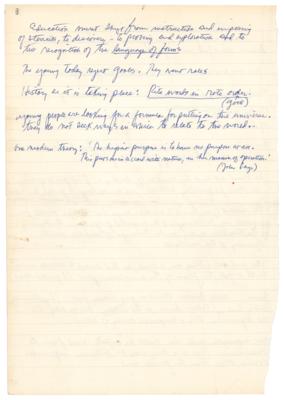 Education must shift from instruction and imposing
of stencils, to discovery - to probing and exploration and to
the recognition of the language of forms
The young today reject goals. They want roles
History as it is taking place: Rite words in rote order.
(Joyce)
young people are looking for a formula for putting on the universe.
they do not seek ways in which to relate to the world.
One modern theory: "The highest purpose is to have no purpose at all.
This puts one in accord with nature, in her manner of operation."
(John Cage)